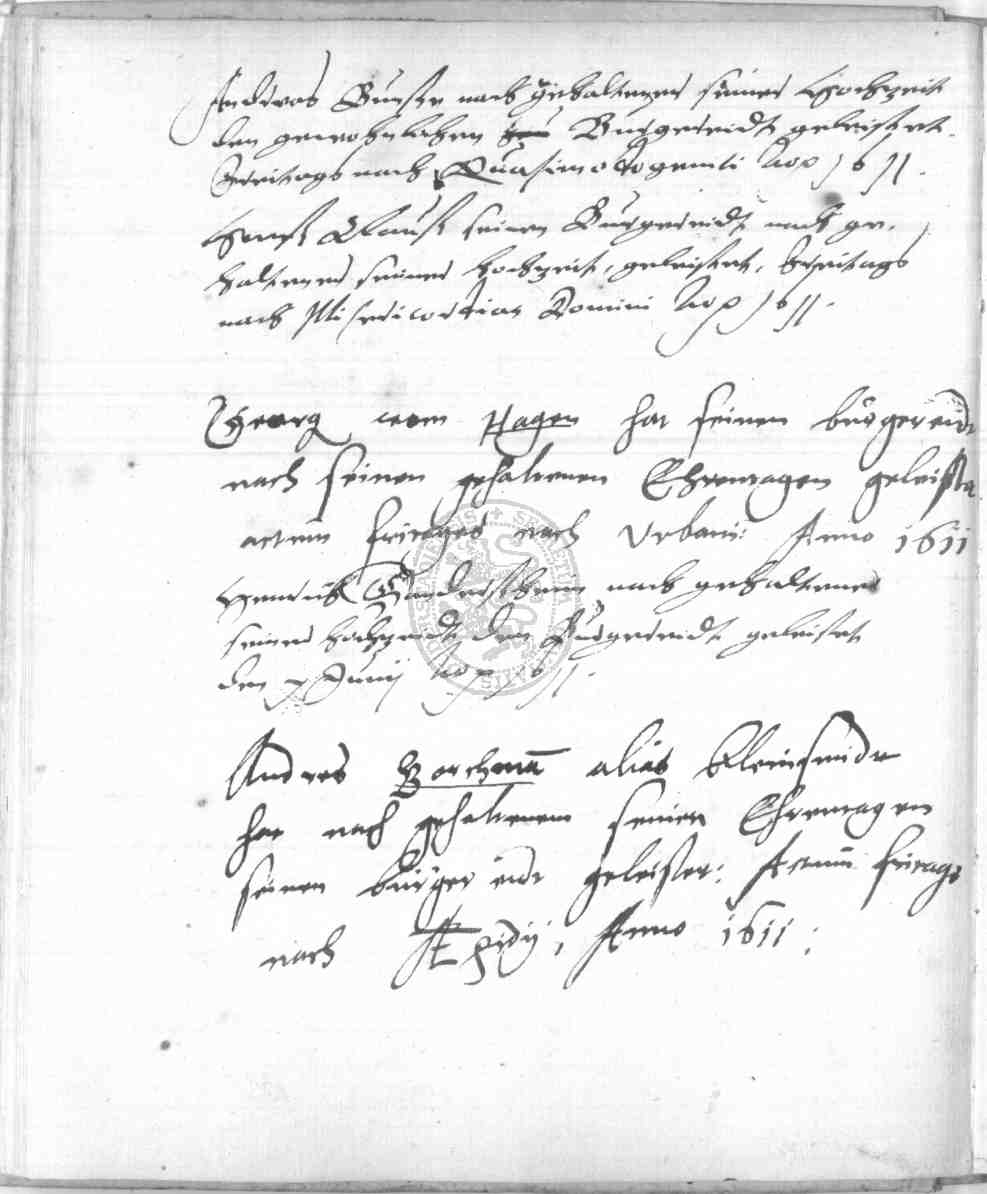 Andreas Bunße nach gehaltener seiner Hochzeit
den gewohnlichen Burgereidt geleistet.
Freitags nach Quasimodogeniti Aõ 1611.
Hanß Clauß seinen Burgereidt nach ge-
haltener seiner hochzeit, geleistet, Freitags
nach Misericordias Domini Aõ 1611.
Georg vom Hagen hat seinen burgereidt
nach seinen gehaltenen Ehrentagen geleistet
actum freitages nach Urbani: Anno 1611
Henrich nach gehaltener
seiner hochzeidt den Burgereidt geleistet
den Junij Aõ 1611.
Andres Borchmã alias Kleinsmidt
hat nach gehaltenem seinen Ehrentagen
seinen burger eidt geleistet: Actum freitags
nach Anno 1611: